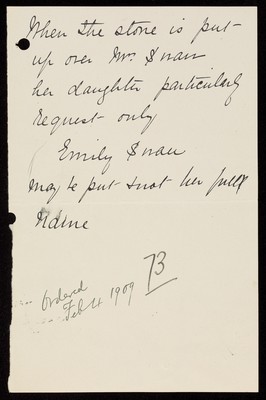 When the stone is put
up over Mr. Swan
her daughter particularly
request only
Emily Swan
may be put & not her full
Name
Ordered
Feb 4 1909
73